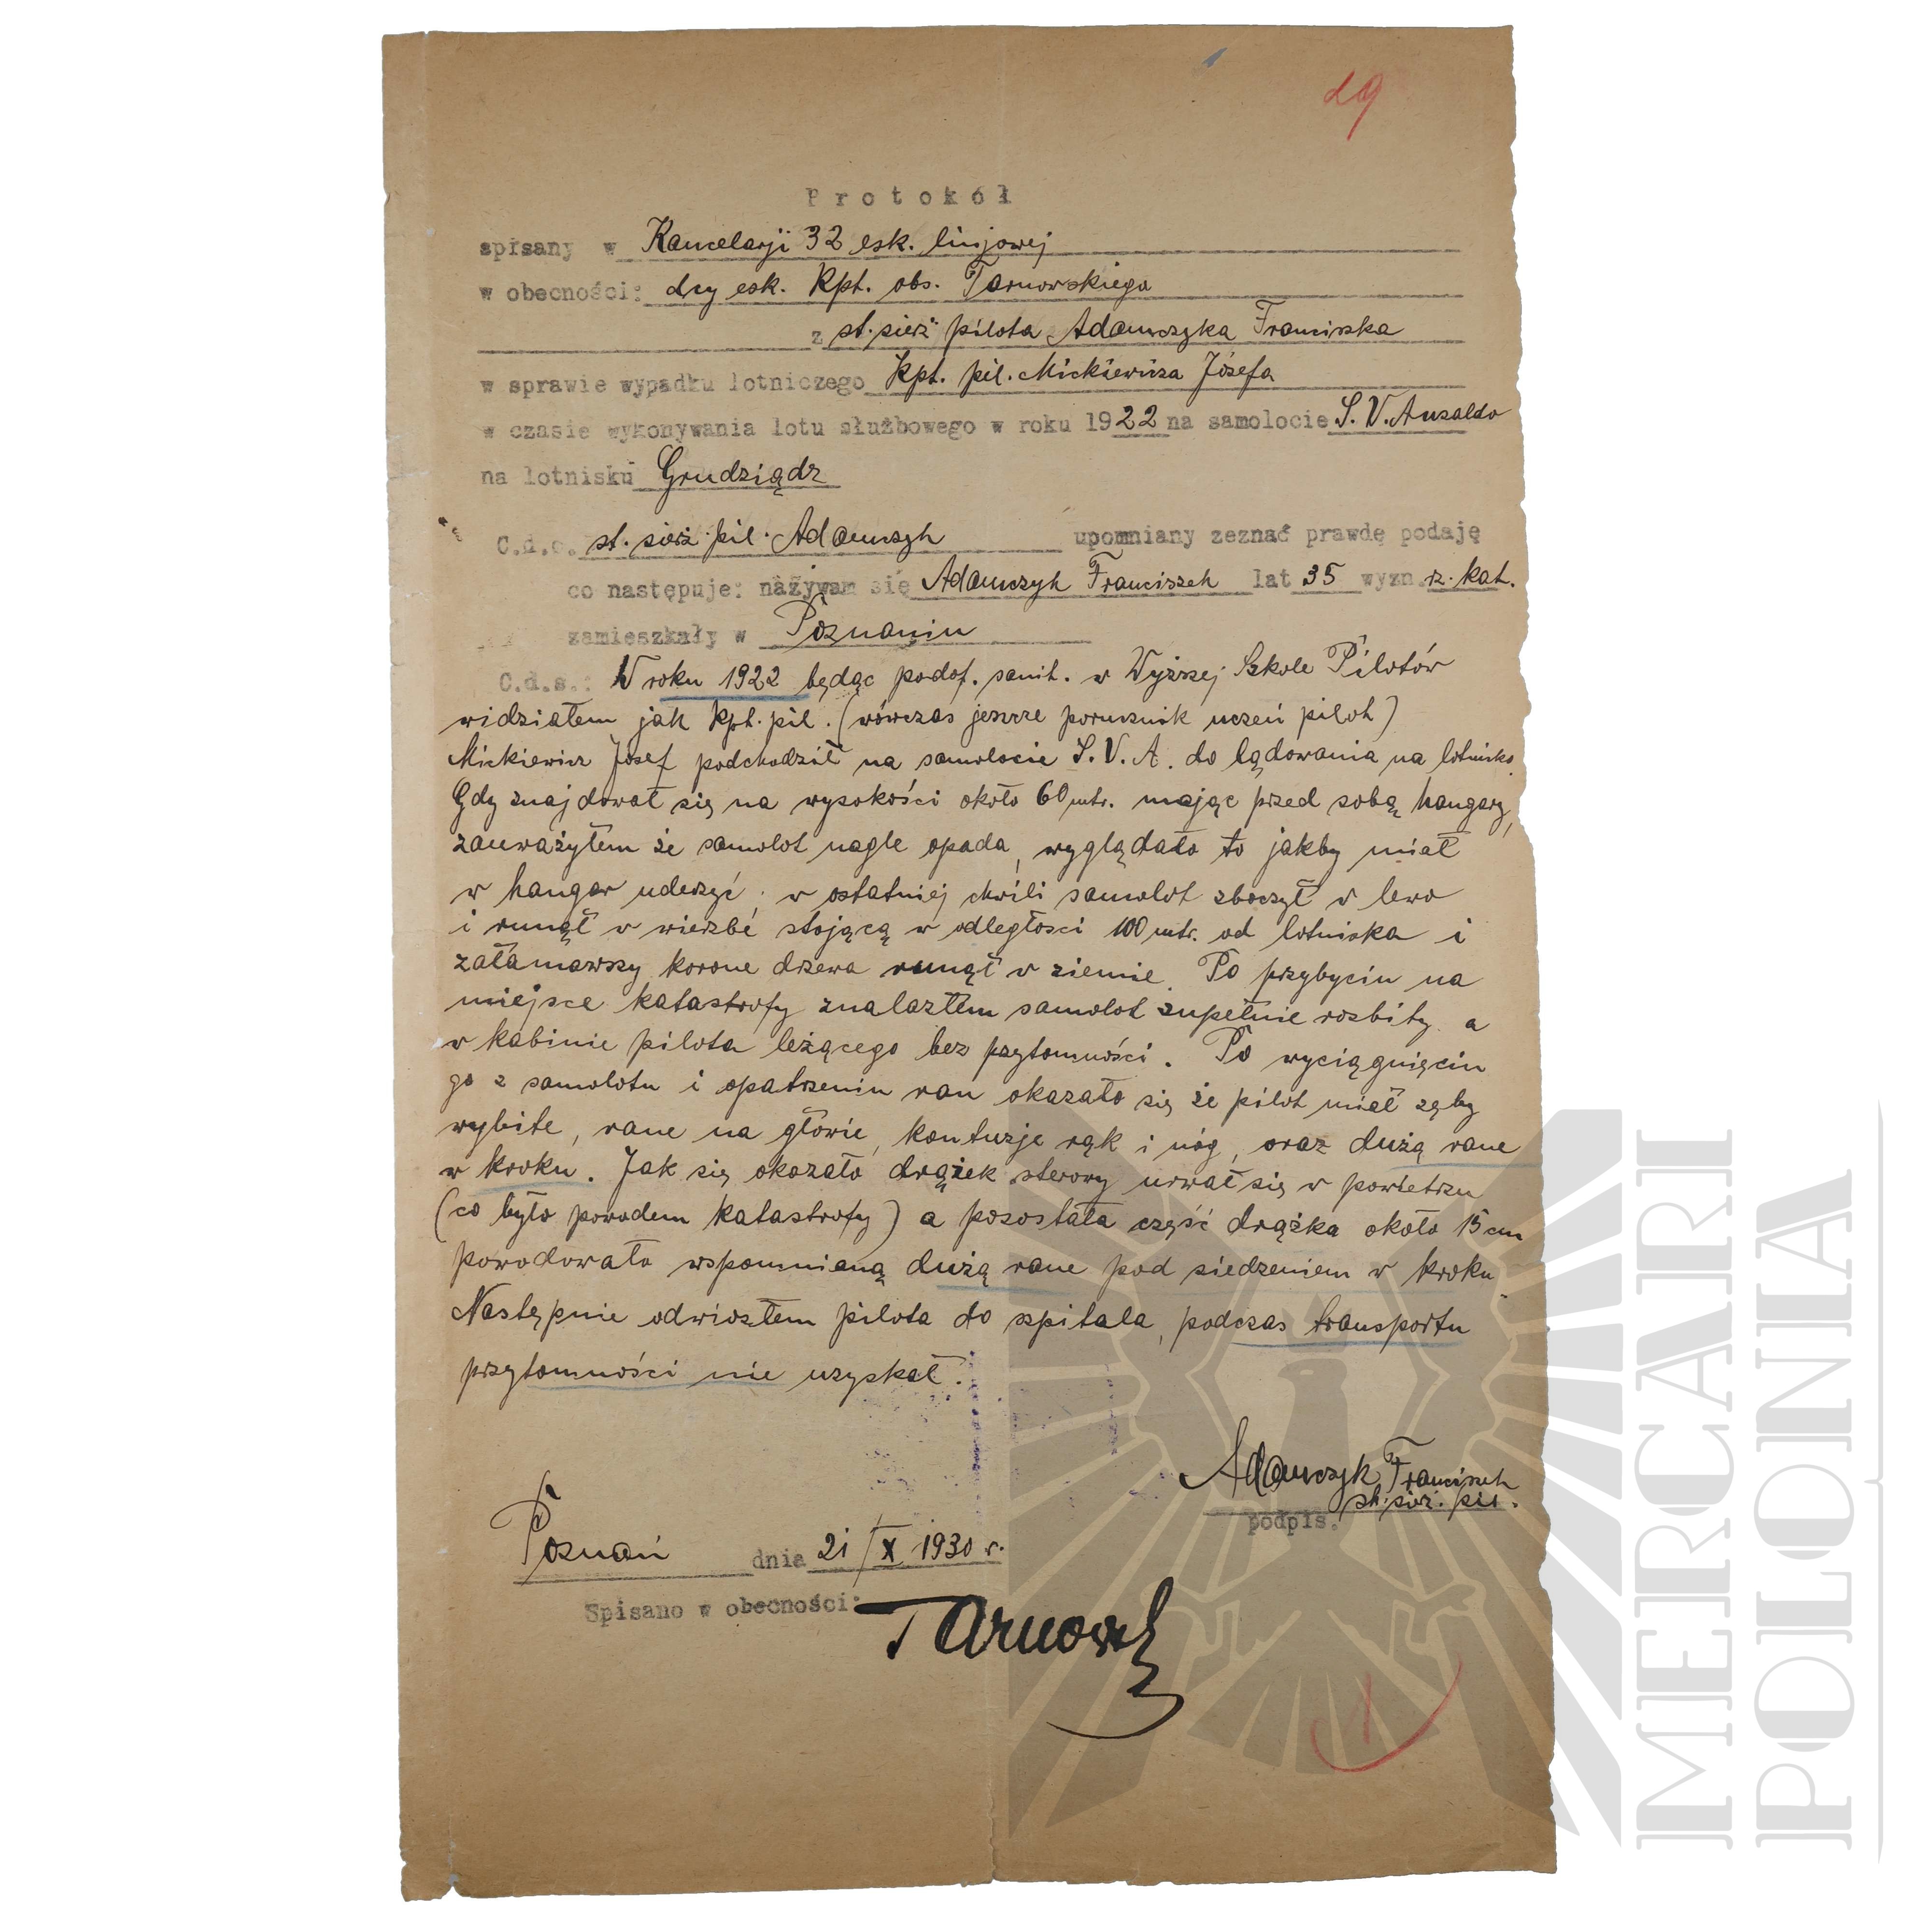 29
Protokół
spisany w Kancelarji 32 esk. linjowej
w obecności: dcy esk. Kpt. obs. Tarnowskiego
z st. sierż pilota Adamczyka Franciszka
w sprawie wypadku lotniczego Kpt. pil. Mickiewicza Józefa
w czasie wykonywania lotu służbowego w roku 1922 na samolocie S.V. Ansaldo
na lotnisku Grudziądz
C.d.o. st. sierż. pil. Adamczyk upomniany zeznać prawdę podaję
co następuje: nażywam się Adamczyk Franciszek lat 35 wyzn. rz. kat.
zamieszkały w Poznaniu
C.d.s.: W roku 1922 będąc podof. sanit. w Wyższej Szkole Pilotów
widziałem jak Kpt. pil. (wówczas jeszcze porucznik uczeń pilot)
Mickiewicz Józef podchodził na samolocie S.V.A. do lądowania na lotnisko.
Gdy znajdował się na wysokości około 60 mtr. mając przed sobą hangary,
zauważyłem że samolot nagle opada, wyglądało to jakby miał
w hangar uderzyć, w ostatniej chwili samolot zboczył w lewo
i runął w wierzbe stojącą w odległosci 100 mtr. od lotniska i
załamawszy korone drzewa runął w ziemie. Po przybyciu na
miejsce katastrofy znalazłem samolot zupełnie rozbity a
w kabinie pilota leżącego bez przytomności. Po wyciągnięciu
go z samolotu i opatrzeniu ran okazało się że pilot miał zęby
wybite, rane na głowie, kontuzje rąk i nóg, oraz dużą rane
w kroku. Jak się okazało drążek sterowy urwał się w powietrzu
(co było powodem katastrofy) a pozostała część drążka około 15 cm
powodowała wspomnianą dużą rane pod siedzeniem w kroku.
Następnie odwiozłem pilota do szpitala, podczas transportu
przytomności nie uzyskał.
Adamczyk Franciszek
st. sierż. pil.
podpis.
Poznań dnia 21/X 1930 r.
Spisano w obecności:
Tarnowski
MERCARI
POLONIA